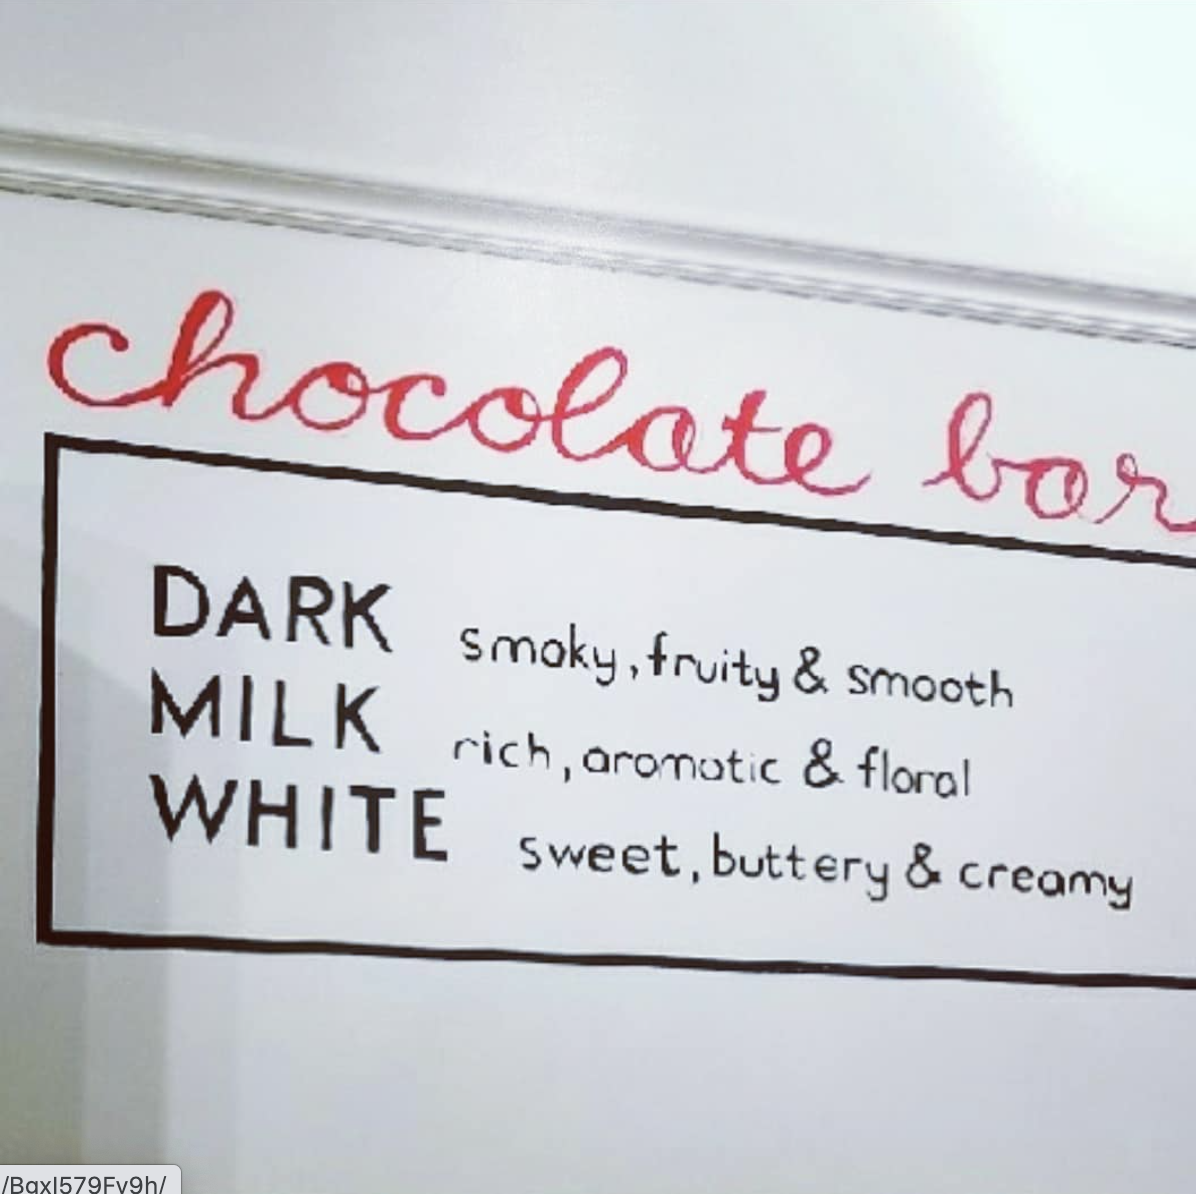 chocolate bar
DARK smoky, fruity & smooth
MILK rich, aromatic & floral
WHITE sweet, buttery & creamy
/BqxI579Fv9h/